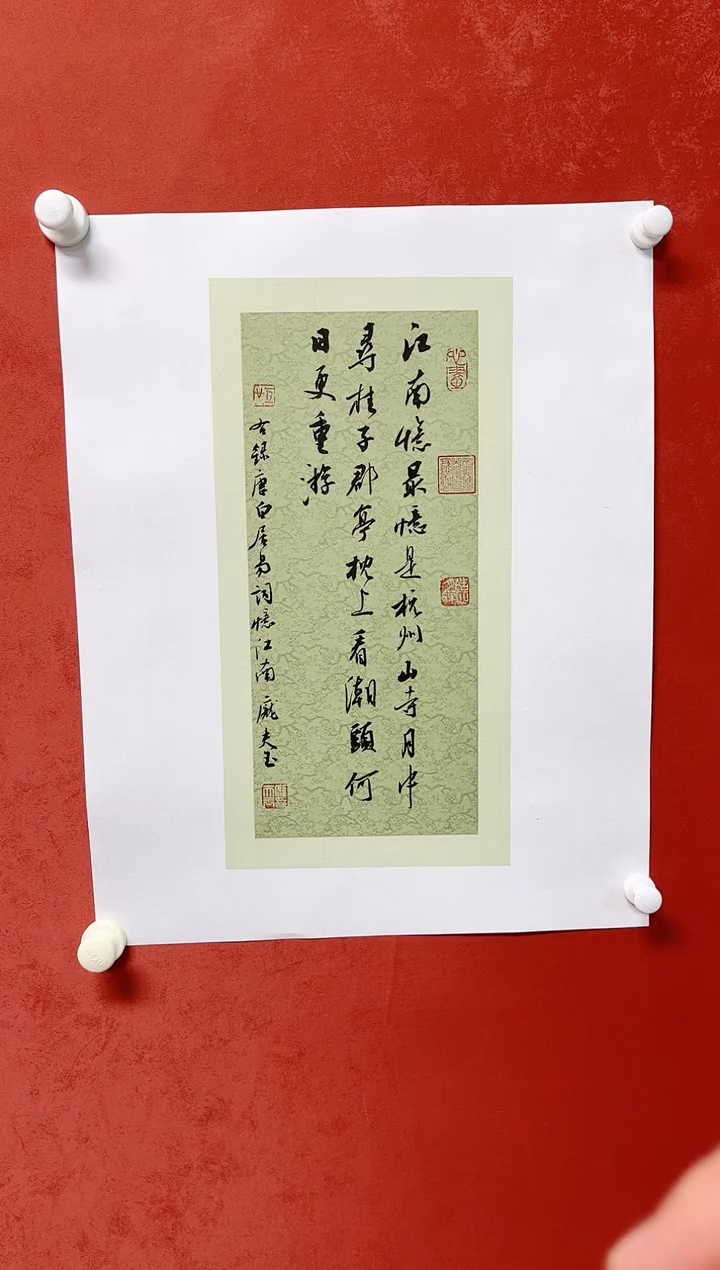 江南憶最憶是杭州山寺月中
尋桂子郡亭枕上看潮頭何
日更重游
右録唐白居易詞憶江南 龐夫玉